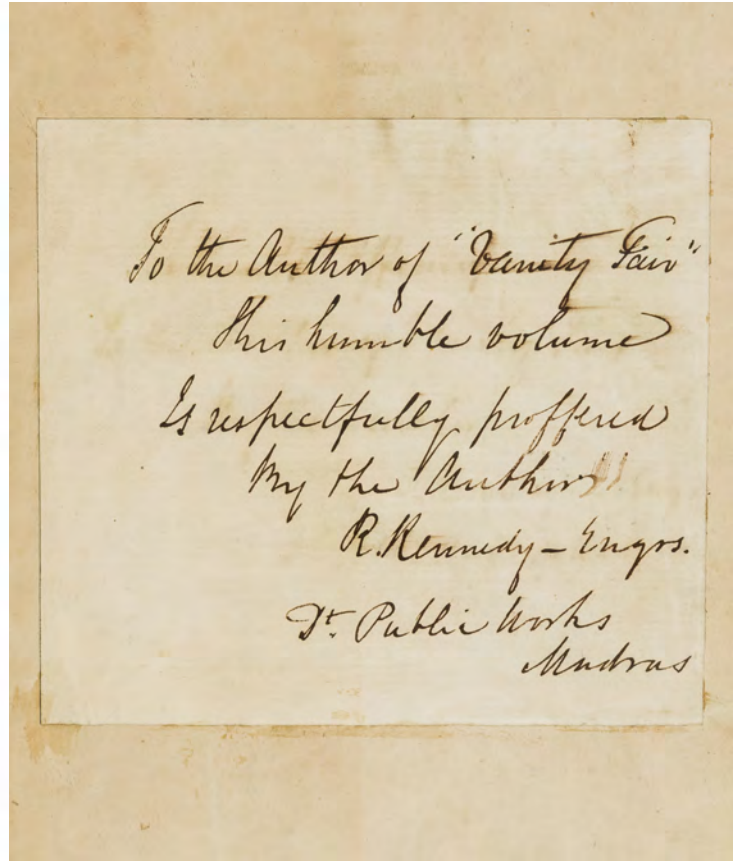 To the Author of "Vanity Fair"
this humble volume
Is respectfully proffered
By the Author
R. Kennedy – Engrs.
Dt. Public Works
Madras